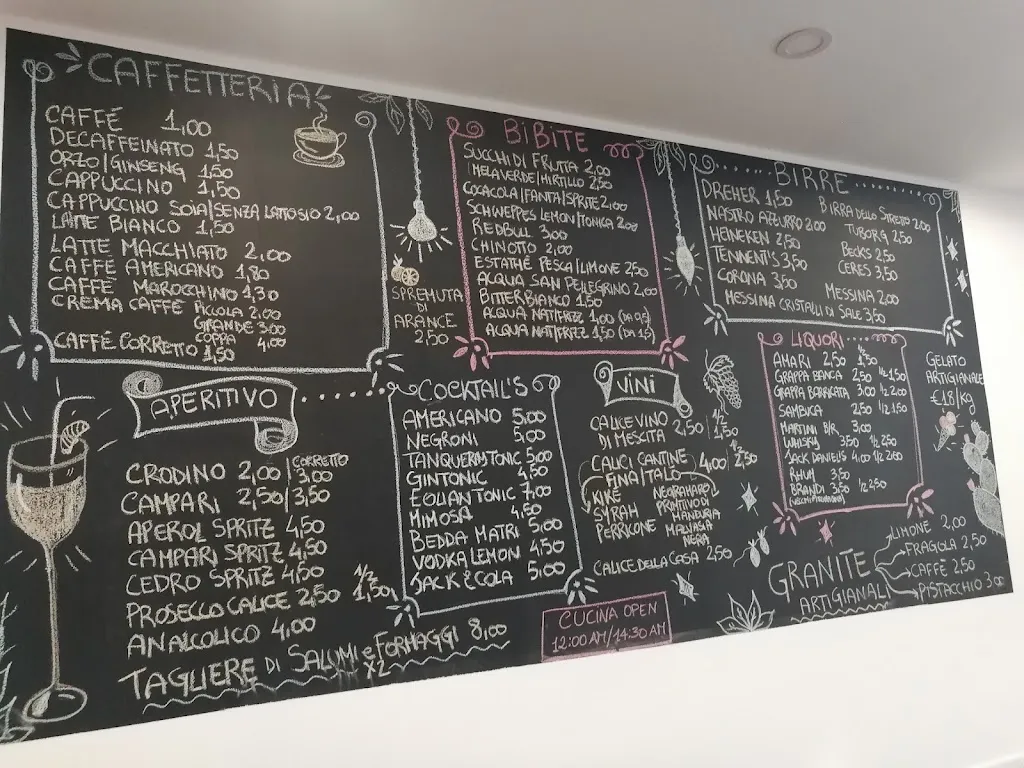 CAFFETTERIA
CAFFÉ 1,00
DECAFFEINATO 1,50
ORZO/GINSENG 1,50
CAPPUCCINO 1,50
CAPPUCCINO SOIA/SENZA LATTOSIO 2,00
LATTE BIANCO 1,50
LATTE MACCHIATO 2,00
CAFFÉ AMERICANO 1,80
CAFFÉ MAROCCHINO 1,30
CREMA CAFFÉ PICCOLA 2,00
GRANDE 3,00
COPPA 4,00
CAFFÉ CORRETTO 1,50
SPREMUTA
DI
ARANCE
2,50
BIBITE
SUCCHI DI FRUTTA 2,00
MELAVERDE/MIRTILLO 2,50
COCACOLA/FANTA/SPRITE 2,00
SCHWEPPES LEMON/TONICA 2,00
REDBULL 3,00
CHINOTTO 2,00
ESTATHÉ PESCA/LIMONE 2,50
ACQUA SAN PELLEGRINO 2,00
BITTER BIANCO 1,50
ACQUA NAT/FRIZZ 1,00
ACQUA NAT/FRIZZ 1,50
BIRRE
DREHER 1,50
NASTRO AZZURRO 2,00
HEINEKEN 2,50
TENNENT'S 3,50
CORONA 3,50
BIRRA DELLO STRETTO 2,00
TUBORG 2,50
BECKS 2,50
CERES 3,50
MESSINA 2,00
MESSINA CRISTALLI DI SALE 3,50
APERITIVO
CRODINO 2,00 | CORRETTO 3,00
CAMPARI 2,50 | 3,50
APEROL SPRITZ 4,50
CAMPARI SPRITZ 4,50
CEDRO SPRITZ 4,50
PROSECCO CALICE 2,50 1/2 1,50
ANALCOLICO 4,00
TAGLIERE DI SALUMI e FORMAGGI 8,00
X2
COCKTAIL'S
AMERICANO 5,00
NEGRONI 5,00
TANQUERAYTONIC 5,00
GINTONIC 4,50
EOLIAN TONIC 7,00
MIMOSA 4,50
BEDDA MATRI 5,00
VODKA LEMON 4,50
JACK E COLA 5,00
VINI
CALICE VINO
DI MESCITA 2,50 | 1/2 1,50
CALICI CANTINE
FINA/ITALO 4,00 | 1/2 2,50
KIKÉ
SYRAH
PERRICONE
NEGROAMARO
PRIMITIVO DI
MANDURIA
MALVASIA
NERA
CALICE DELLA CASA 2,50
LIQUORI
AMARI 2,50 1/2 1,50
GRAPPA BIANCA 2,50 1/2 1,50
GRAPPA BARRICATA 3,00 1/2 2,00
SAMBUCA 2,50 1/2 1,50
MARTINI B/R 3,00
WHISKY 3,50 1/2 2,50
JACK DANIEL'S 4,00 1/2 2,60
RHUM 3,50
BRANDI 3,50 1/2 2,50
GELATO
ARTIGIANALE
€18/kg
GRANITE
ARTIGIANALI
LIMONE 2,00
FRAGOLA 2,50
CAFFÉ 2,50
PISTACCHIO 3,00
CUCINA OPEN
12:00 AM/14:30 AM